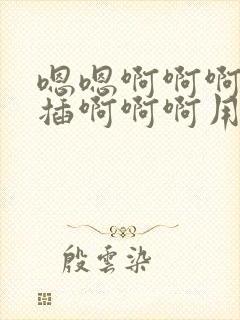 嗯嗯啊啊啊
插啊啊啊用
殷雲染